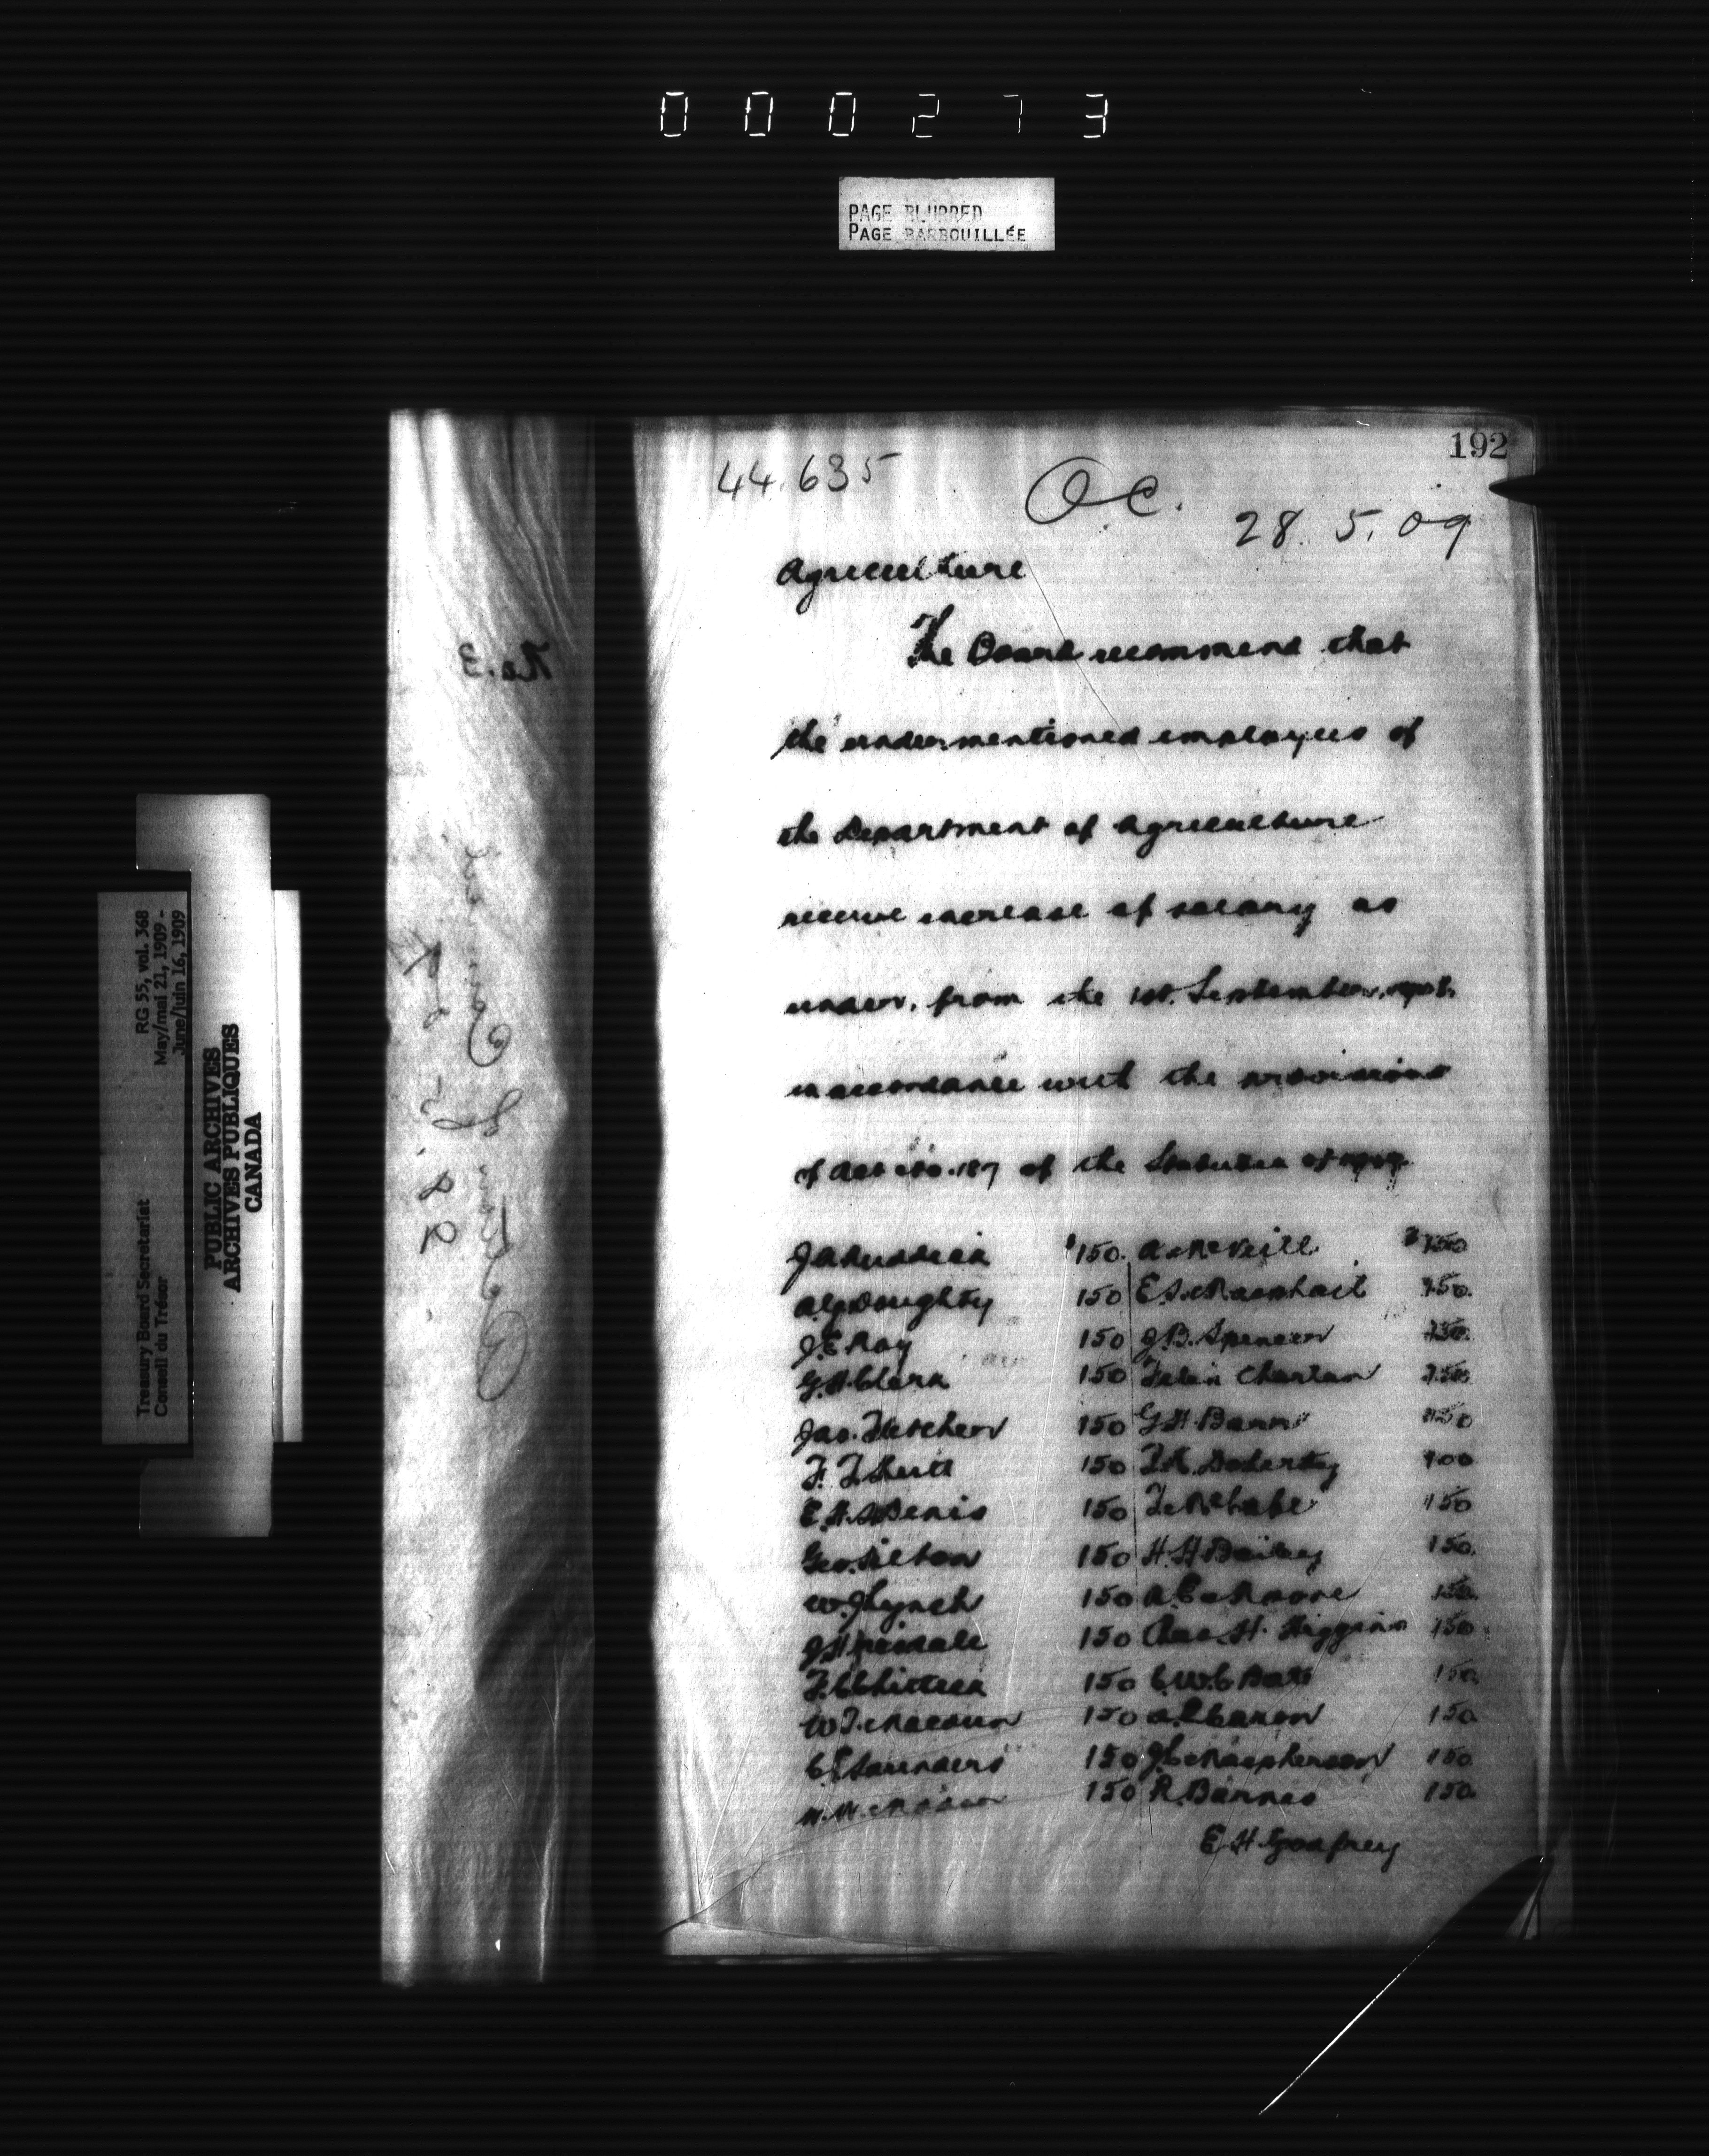 000273
PAGE BLURRED
PAGE BARBOUILLÉE
RG 55, vol. 368
May/mai 21, 1909 -
June/juin 16, 1909
Treasury Board Secretariat
Conseil du Trésor
PUBLIC ARCHIVES
ARCHIVES PUBLIQUES
CANADA
No. 3
192
44.635
O.C.
28. 5. 09
Agriculture
The Board recommend that
the undermentioned employees of
the Department of Agriculture
receive increase of salary as
under, from the 1st. September, 1908.
in accordance with the provisions
of Act No. 187 of the Statutes of 1909
J A Ruddick $150. A McNeill $150
A G Doughty 150 E S MacPhail 150.
J. E. Roy 150 J. B. Spencer 150.
G. H. Clark 150 Felix Charlan 150
Jas. Fletcher 150 G H Barr 150
F. T. Shutt 150 T. K. Doherty 100
E. H. St Denis 150 150
Geo. Hilton 150 H. H. Bailey 150.
W. J Lynch 150 150.
J H Grisdale 150 Chas. H. Higgins 150
F. C. Chittick 150 C. W. C. 150.
W T. Macoun 150 A. L. Caron 150
C E Saunders 150 J C Macpherson 150
W. W. Moore 150 R. Barnes 150.
E H Godfrey